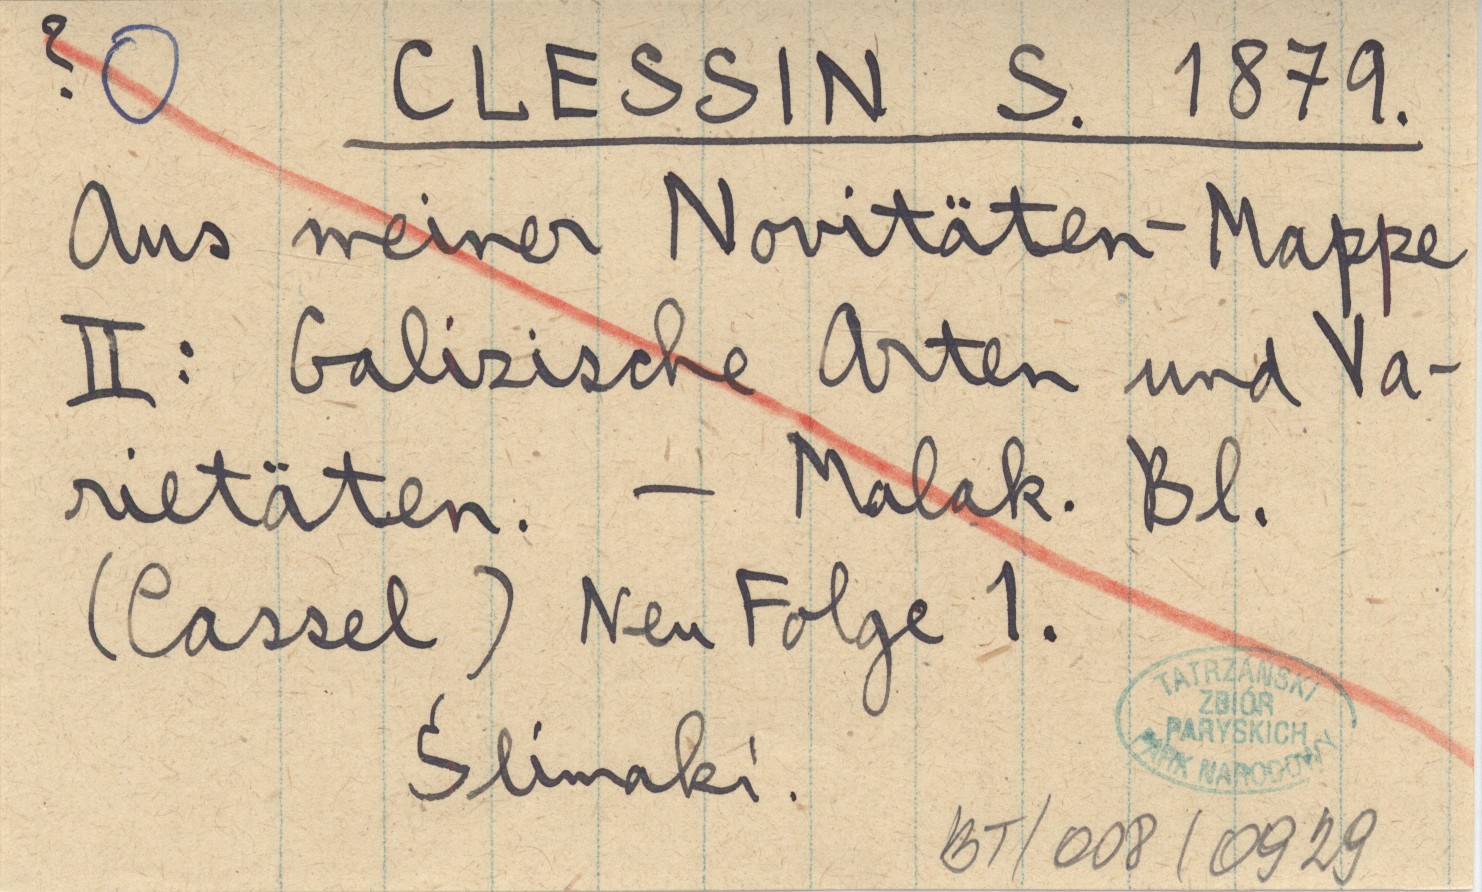 ?
CLESSIN S. 1879.
Aus meiner Novitäten-Mappe
II: Galizische Arten und Va-
rietäten. — Malak. Bl.
(Cassel) Neu Folge 1.
Ślimaki.
TATRZAŃSKI
ZBIÓR
PARYSKICH
PARK NARODOWY
BT/008/0929